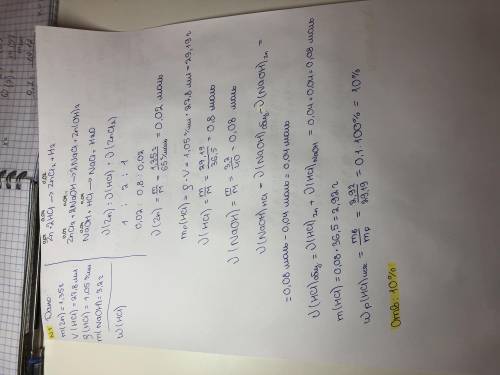 №1 Дано:
m(Zn) = 1,35г
V(HCl) = 27,8 мл
ρ(HCl) = 1,05 г/мл
m(NaOH) = 3,2г
W(HCl)
Zn + 2HCl → ZnCl₂ + H₂
ZnCl₂ + 2NaOH → 2NaCl + Zn(OH)₂
NaOH + HCl → NaCl + H₂O
ν(Zn) : ν(HCl) : ν(ZnCl₂)
1 : 2 : 1
0,02 0,8 : 0,02
ν(Zn) = m/M = 1,35г / 65 г/моль = 0,02 моль
mр(HCl) = ρ · V = 1,05 г/мл * 27,8 мл = 29,19 г
ν(HCl) = m/M = 29,19 / 36,5 = 0,8 моль
ν(NaOH) = m/M = 3,2 / 40 = 0,08 моль
ν(NaOH)HCl = ν(NaOH)общ - ν(NaOH)Zn =
= 0,08 моль - 0,04 моль = 0,04 моль
ν(HCl)общ = ν(HCl)Zn + ν(HCl)NaOH = 0,04 + 0,04 = 0,08 моль
m(HCl) = 0,08 · 36,5 = 2,92 г
Wр(HCl)исх = mв / mр = 2,92 / 29,19 = 0,1 · 100% = 10%
Ответ: 10%